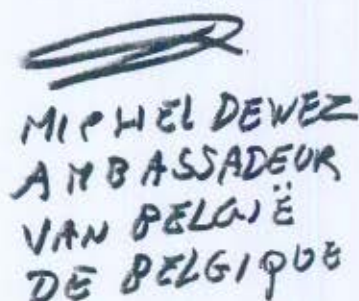 MICHEL DEWEZ
AMBASSADEUR
VAN BELGIË
DE BELGIQUE